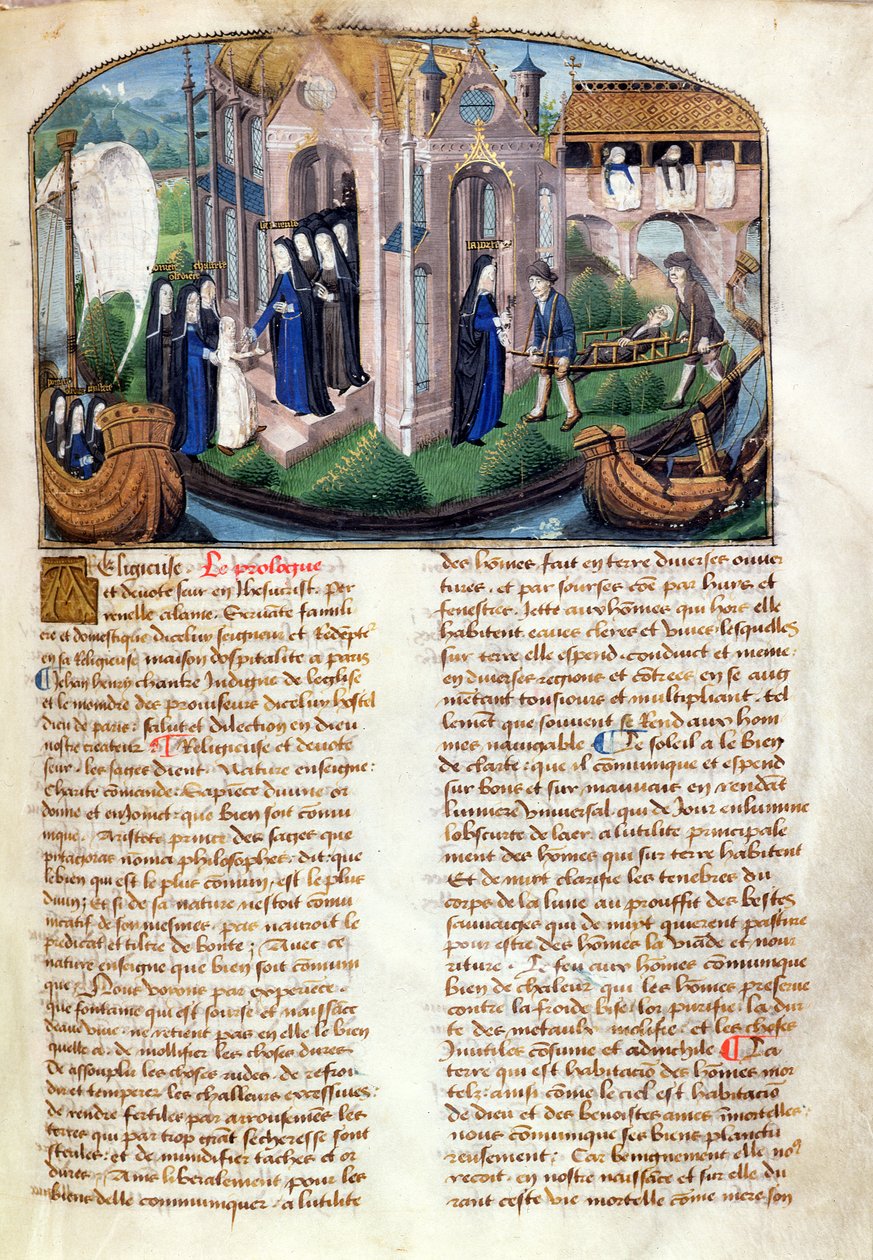 la prieuse
la portiere
chastete
Religieuse. Le prologue
et devote seur en Jhesucrist. Per
renelle alame. Servante famili
ere et domestique dicelui seigneur et Redẽpte
en sa Religieuse maison dospitalite a paris
Jehan henry chantre Indigne de leglise
et le mendre des proviseurs dicelui hostel
dieu de paris: salut et dilection en dieu
nostre createur. Religieuse et devote
seur. les sages dient. Nature enseigne:
Charite comande: Sapiece divine or
donne et enjoinct: que bien soit comu
nique. Aristote prince des sages que
pitagoras noma philosophes: dit: que
le bien qui est le plus comun, est le plus
divin; Et si de sa nature nestoit comu
nicatif de son mesmes, pas nauroit le
predicat et tiltre de bonte; Avec ce
nature enseigne que bien soit comuni
que. Nous voyons par experiẽce.
que fontaine qui est sourse et naissãce
deaue vive. ne retient pas en elle le bien
quelle a. de mollifier les choses dures
de assouplir les choses rudes. de refroi
dir et temperer les challeurs excessives:
de rendre fertiles par arrousemẽs les
terres qui par trop grãt secheresse sont
steriles: et de mundifier taches et or
dures. Ains liberalement pour les
biens delle communiquer. a lutilite
des hõmes, fait en terre diverses ouver
tures. et par sourses cõe par huys et
fenestres. Jette aux hõmes qui hors elle
habitent eaues cleres et vives. lesquelles
sur terre elle espend. conduict et meine.
en diverses regions et cõtrees en se aug
mẽtant tousiours et multipliant. tel
lement que souvent se Rend aux hom
mes navigable. Le soleil a le bien
de clarte: que il comunique et espend
sur bons et sur mauvais en rendãt
lumiere universal. qui de Jour enlumine
lobscurte de laer. a lutilite principale
ment des hõmes qui sur terre habitent
Et de nuyt clarifie les tenebres du
corps de la lune au prouffit des bestes
sauvaiges qui de nuyt quierent pasture
pour estre des hõmes la viãde et nour
riture. Le feu aux hõmes comunique
bien de chaleur qui les hõmes preserve
contre la froide bise. lor purifie. la dur
te des metaulx molifie. et les choses
Inutiles cõsume et adnichile. La
terre qui est habitaciõ des hõmes mor
telz: ainsi cõme le ciel est habitaciõ
de dieu et des benoistes ames ĩmortelles.
nous communique ses biens plantu
reusement: Car benignement elle noꝰ
recoit. en nostre naissance et sur elle du
rant ceste vie mortelle cõme mere. son